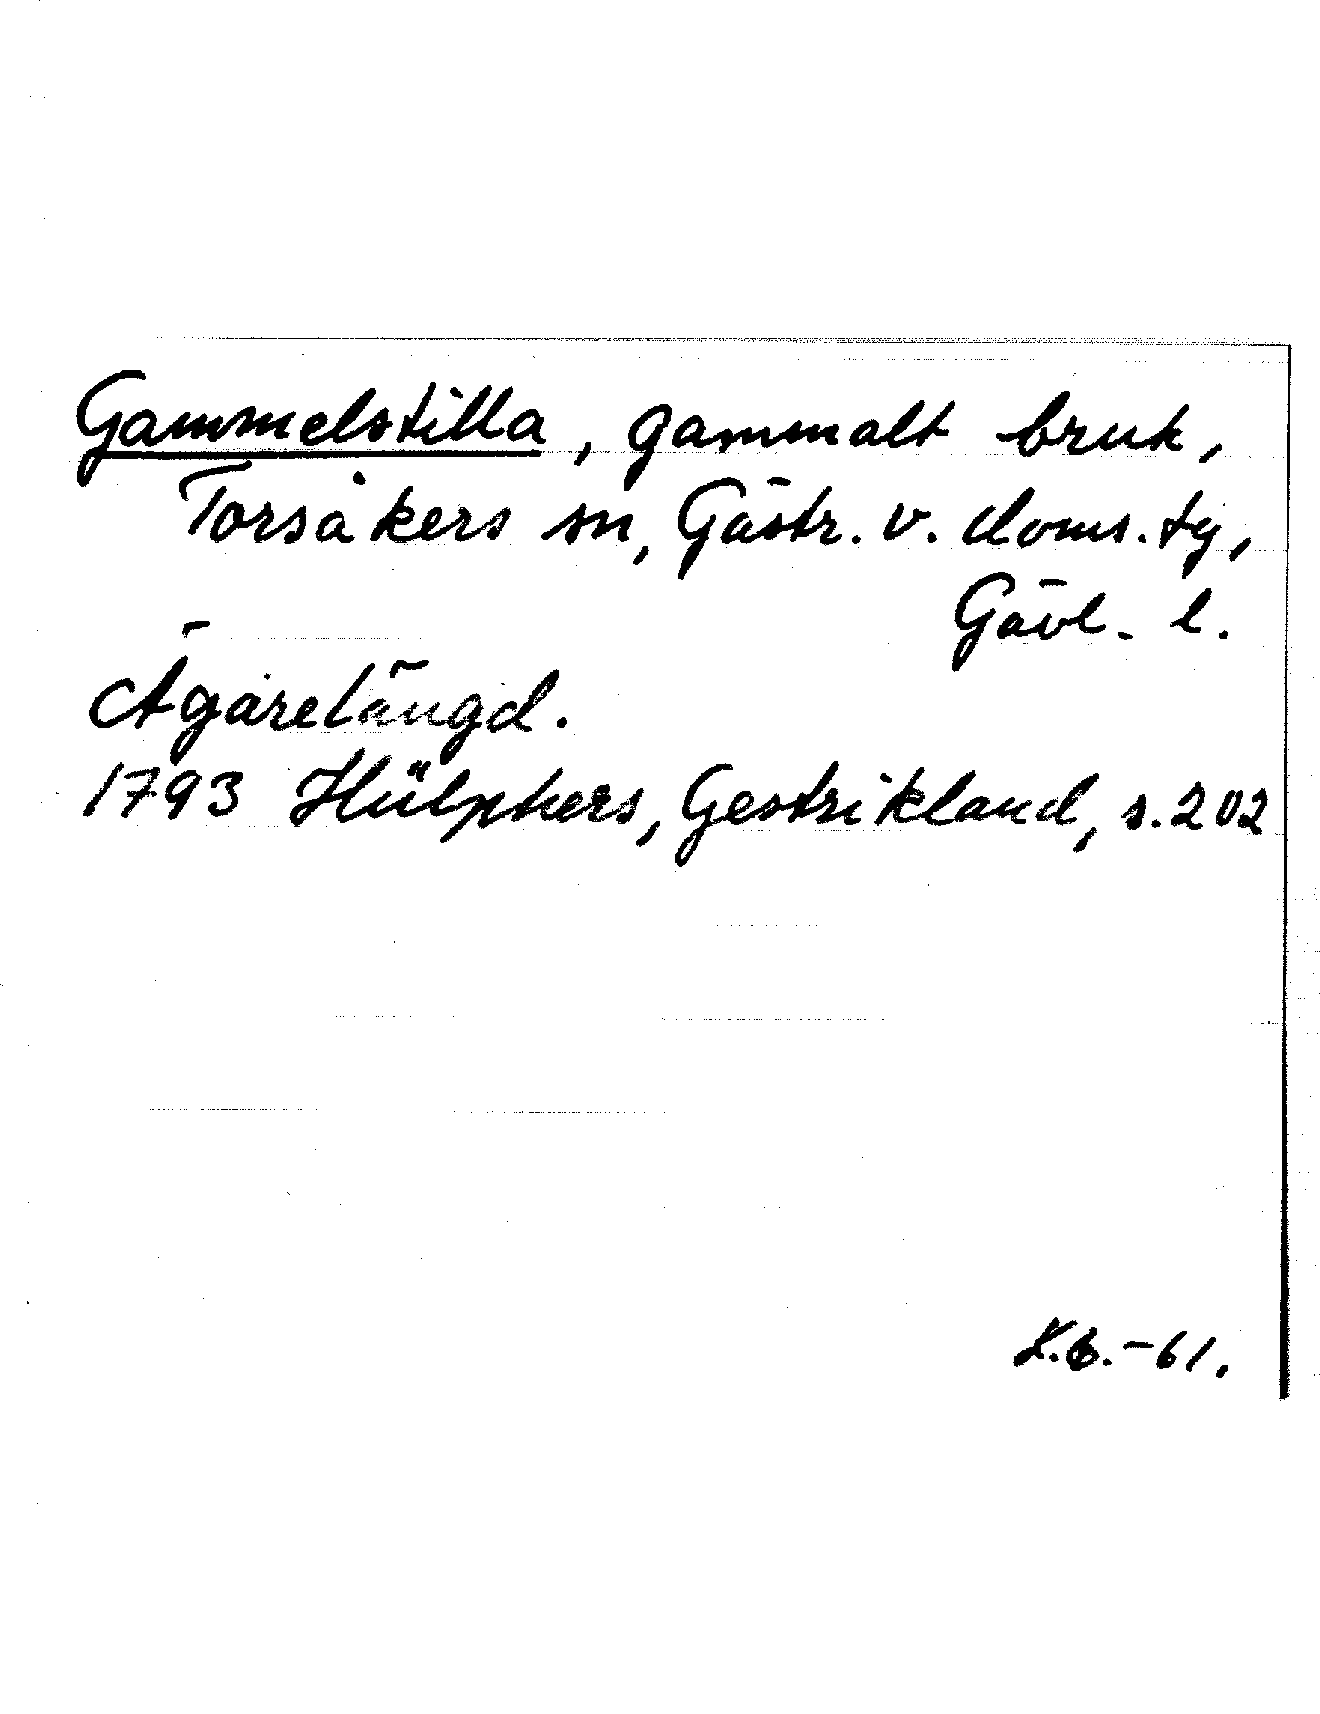 Gammelstilla, gammalt bruk,
Torsåkers sn, Gästr. v. doms.tg,
Gävl. l.
Ägarelängd.
1793 Hülphers, Gestrikland, s. 202
K.G.-61.